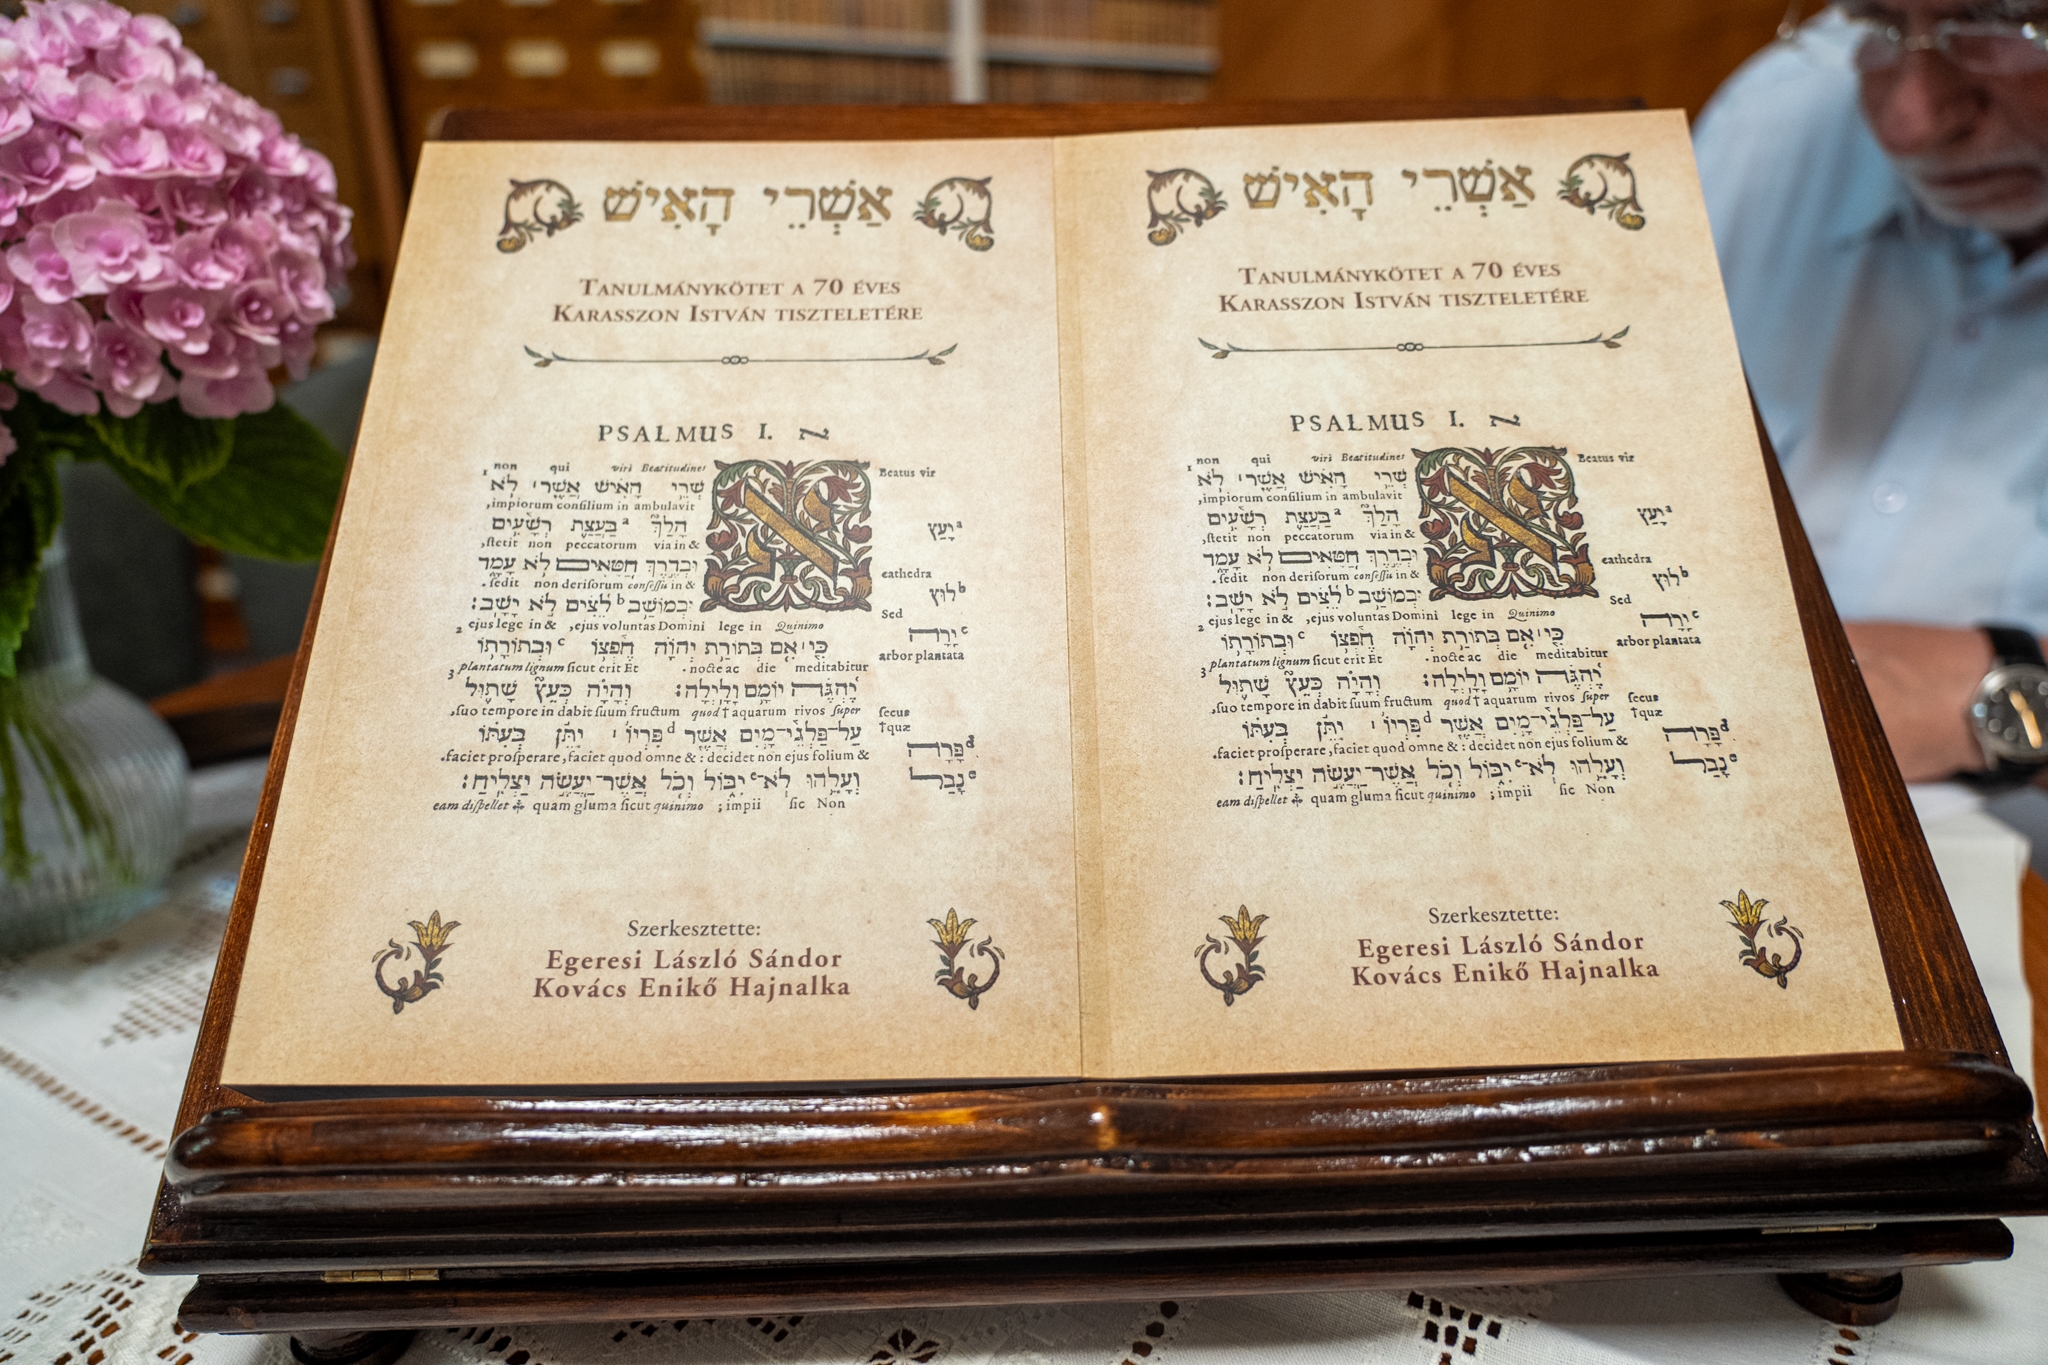 אַשְׁרֵי הָאִישׁ
TANULMÁNYKÖTET A 70 ÉVES
KARASSZON ISTVÁN TISZTELETÉRE
PSALMUS I. א
non qui viri Beatitudines
Beatus vir
1 שְׁרֵי הָאִישׁ אֲשֶׁר לֹא
,impiorum consilium in ambulavit
הָלַךְ בַּעֲצַת רְשָׁעִים
יָעַץ a
,stetit non peccatorum via in &
וּבְדֶרֶךְ חַטָּאִים לֹא עָמָד
cathedra
.sedit non derisorum consessu in &
לוּץ b
וּבְמוֹשַׁב לֵצִים לֹא יָשָׁב:
Sed
2 ejus lege in & ,ejus voluntas Domini lege in Quinimo
יָרָה c
כִּי אִם בְּתוֹרַת יְהוָה חֶפְצוֹ וּבְתוֹרָתוֹ
arbor plantata
3 plantatum lignum sicut erit Et .nocte ac die meditabitur
יֶהְגֶּה יוֹמָם וָלָיְלָה: וְהָיָה כְּעֵץ שָׁתוּל
,suo tempore in dabit suum fructum quod † aquarum rivos super
secus
†quæ
עַל־פַּלְגֵי־מָיִם אֲשֶׁר פִּרְיוֹ יִתֵּן בְּעִתּוֹ
פָּרָה d
.faciet prosperare ,faciet quod omne & : decidet non ejus folium &
נָבַל e
וְעָלֵהוּ לֹא־יִבּוֹל וְכֹל אֲשֶׁר־יַעֲשֶׂה יַצְלִיחַ:
eam dispellet quam gluma sicut quinimo ; impii sic Non
Szerkesztette:
Egeresi László Sándor
Kovács Enikő Hajnalka
אַשְׁרֵי הָאִישׁ
TANULMÁNYKÖTET A 70 ÉVES
KARASSZON ISTVÁN TISZTELETÉRE
PSALMUS I. א
non qui viri Beatitudines
Beatus vir
1 שְׁרֵי הָאִישׁ אֲשֶׁר לֹא
,impiorum consilium in ambulavit
הָלַךְ בַּעֲצַת רְשָׁעִים
יָעַץ a
,stetit non peccatorum via in &
וּבְדֶרֶךְ חַטָּאִים לֹא עָמָד
cathedra
.sedit non derisorum consessu in &
לוּץ b
וּבְמוֹשַׁב לֵצִים לֹא יָשָׁב:
Sed
2 ejus lege in & ,ejus voluntas Domini lege in Quinimo
יָרָה c
כִּי אִם בְּתוֹרַת יְהוָה חֶפְצוֹ וּבְתוֹרָתוֹ
arbor plantata
3 plantatum lignum sicut erit Et .nocte ac die meditabitur
יֶהְגֶּה יוֹמָם וָלָיְלָה: וְהָיָה כְּעֵץ שָׁתוּל
,suo tempore in dabit suum fructum quod † aquarum rivos super
secus
†quæ
עַל־פַּלְגֵי־מָיִם אֲשֶׁר פִּרְיוֹ יִתֵּן בְּעִתּוֹ
פָּרָה d
.faciet prosperare ,faciet quod omne & : decidet non ejus folium &
נָבַל e
וְעָלֵהוּ לֹא־יִבּוֹל וְכֹל אֲשֶׁר־יַעֲשֶׂה יַצְלִיחַ:
eam dispellet quam gluma sicut quinimo ; impii sic Non
Szerkesztette:
Egeresi László Sándor
Kovács Enikő Hajnalka